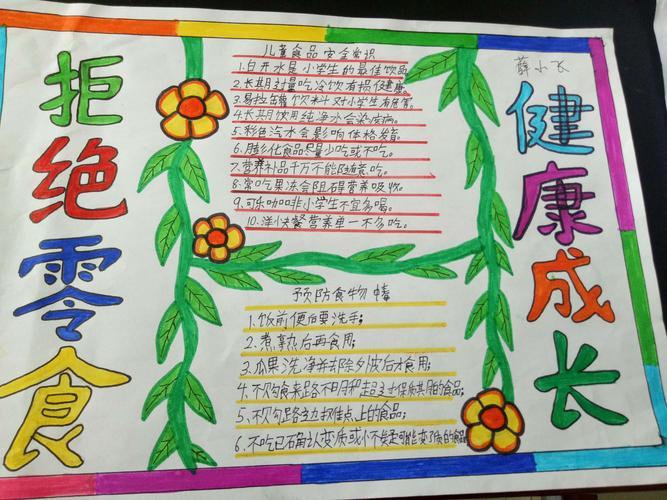 拒绝零食
儿童食品安全常识
1.白开水是小学生的最佳饮品
2.长期过量吃冷饮有损健康。
3.易拉罐饮料对小学生有危害。
4.长期饮用纯净水会染疾病。
5.彩色汽水会影响体格发育。
6.膨化食品尽量少吃或不吃。
7.营养补品千万不能随意吃。
8.常吃果冻会阻碍营养吸收。
9.可乐咖啡小学生不宜多喝。
10.洋快餐营养单一不多吃。
预防食物中毒
1.饭前便后要洗手;
2.煮熟后再食用;
3.瓜果洗净并去除外皮后才食用;
4.不购食来路不明和超过保质期的食品;
5.不购路边摊点上的食品;
6.不吃已确认变质或怀疑可能变了质的食品
薛小飞
健康成长